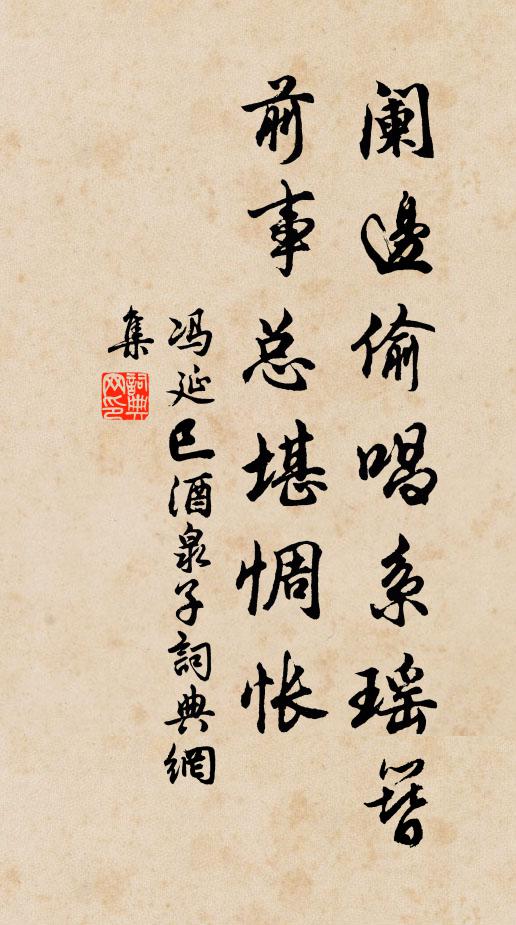 阑邊偷唱系瑶簪
前事总堪惆怅
冯延巳酒泉子詞典網
集
詞典
网印